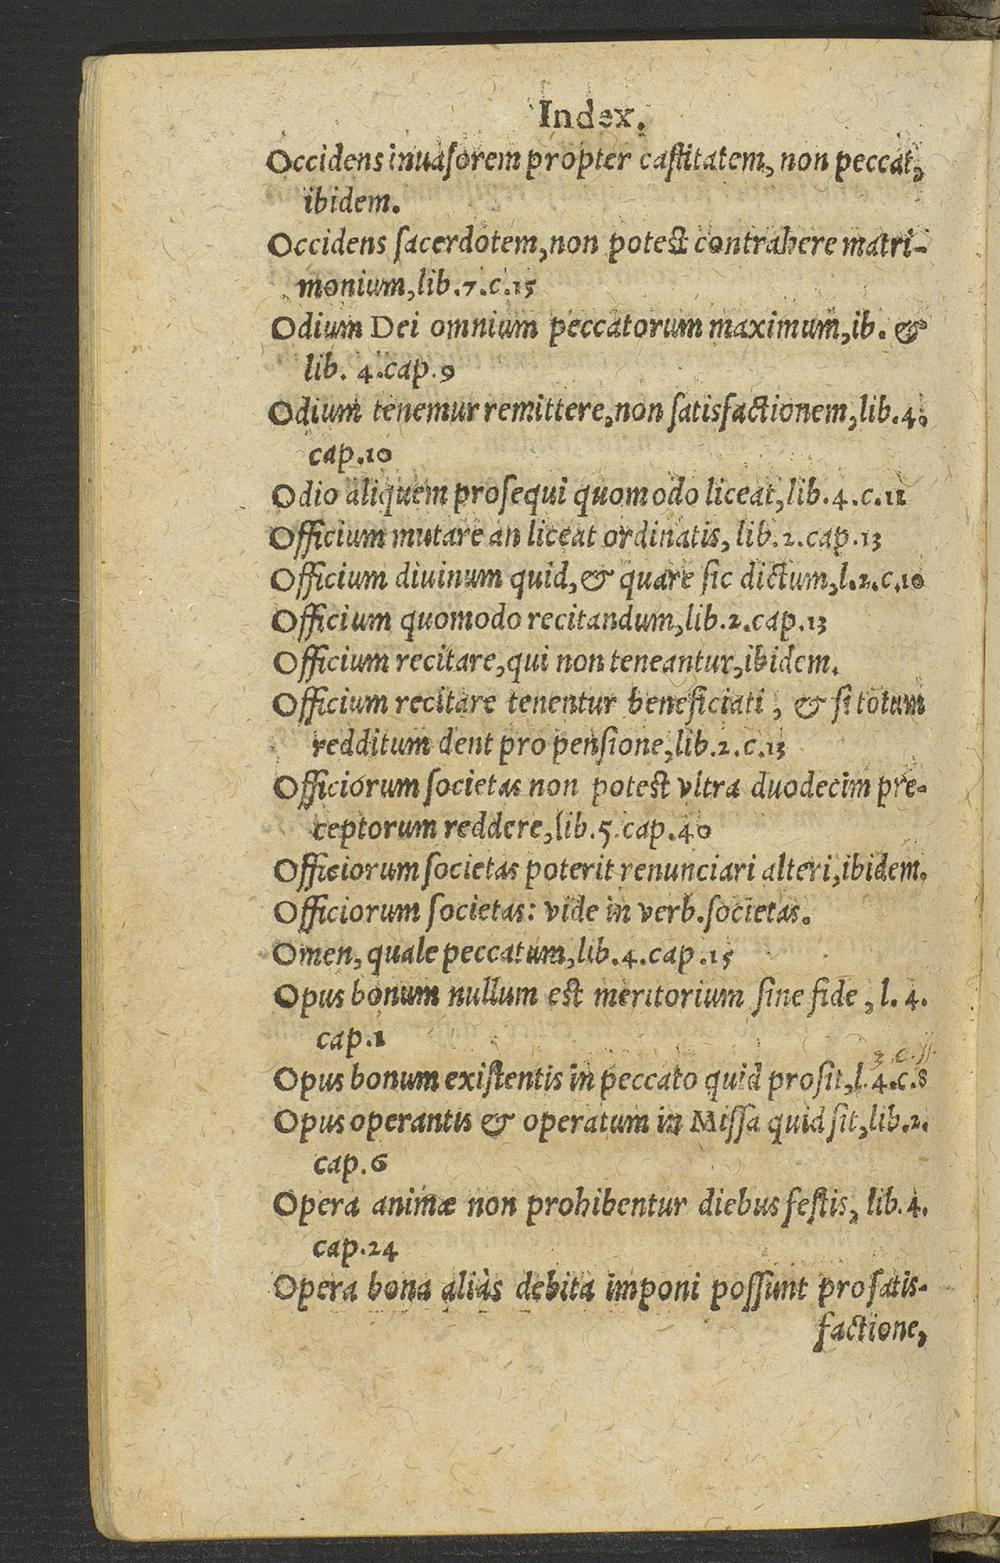 Index.
Occidens inuasorem propter castitatem, non peccat,
ibidem.
Occidens sacerdotem, non potest contrahere matri-
monium, lib.7.c.15
Odium Dei omnium peccatorum maximum, ib. &
lib. 4.cap.9
Odium tenemur remittere, non satisfactionem, lib.4.
cap.10
Odio aliquem prosequi quomodo liceat, lib.4.c.11
Officium mutare an liceat ordinatis, lib.2.cap.13
Officium diuinum quid, & quare sic dictum, l.2.c.10
Officium quomodo recitandum, lib.2.cap.13
Officium recitare, qui non teneantur, ibidem.
Officium recitare tenentur beneficiati, & si totum
redditum dent pro pensione, lib.2.c.13
Officiorum societas non potest vltra duodecim pre-
ceptorum reddere, lib.5.cap.40
Officiorum societas poterit renunciari alteri, ibidem.
Officiorum societas: vide in verb.societas.
Omen, quale peccatum, lib.4.cap.15
Opus bonum nullum est meritorium sine fide, l. 4.
cap.1
3.c.11.
Opus bonum existentis in peccato quid prosit, l.4.c.8
Opus operantis & operatum in Missa quid sit, lib.2.
cap.6
Opera animæ non prohibentur diebus festis, lib.4.
cap.24
Opera bona aliàs debita imponi possunt pro satis-
factione,